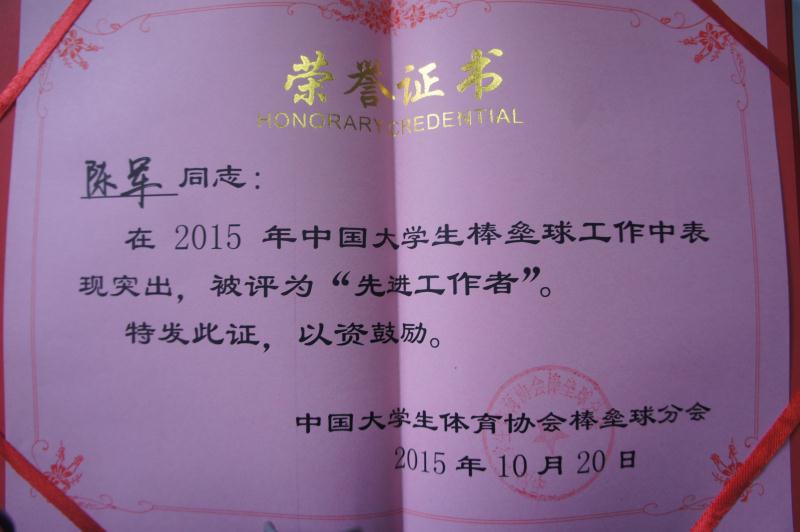 荣誉证书
HONORARY CREDENTIAL
陈军 同志：
在 2015 年中国大学生棒垒球工作中表
现突出，被评为“先进工作者”。
特发此证，以资鼓励。
中国大学生体育协会棒垒球分会
2015 年 10 月 20 日